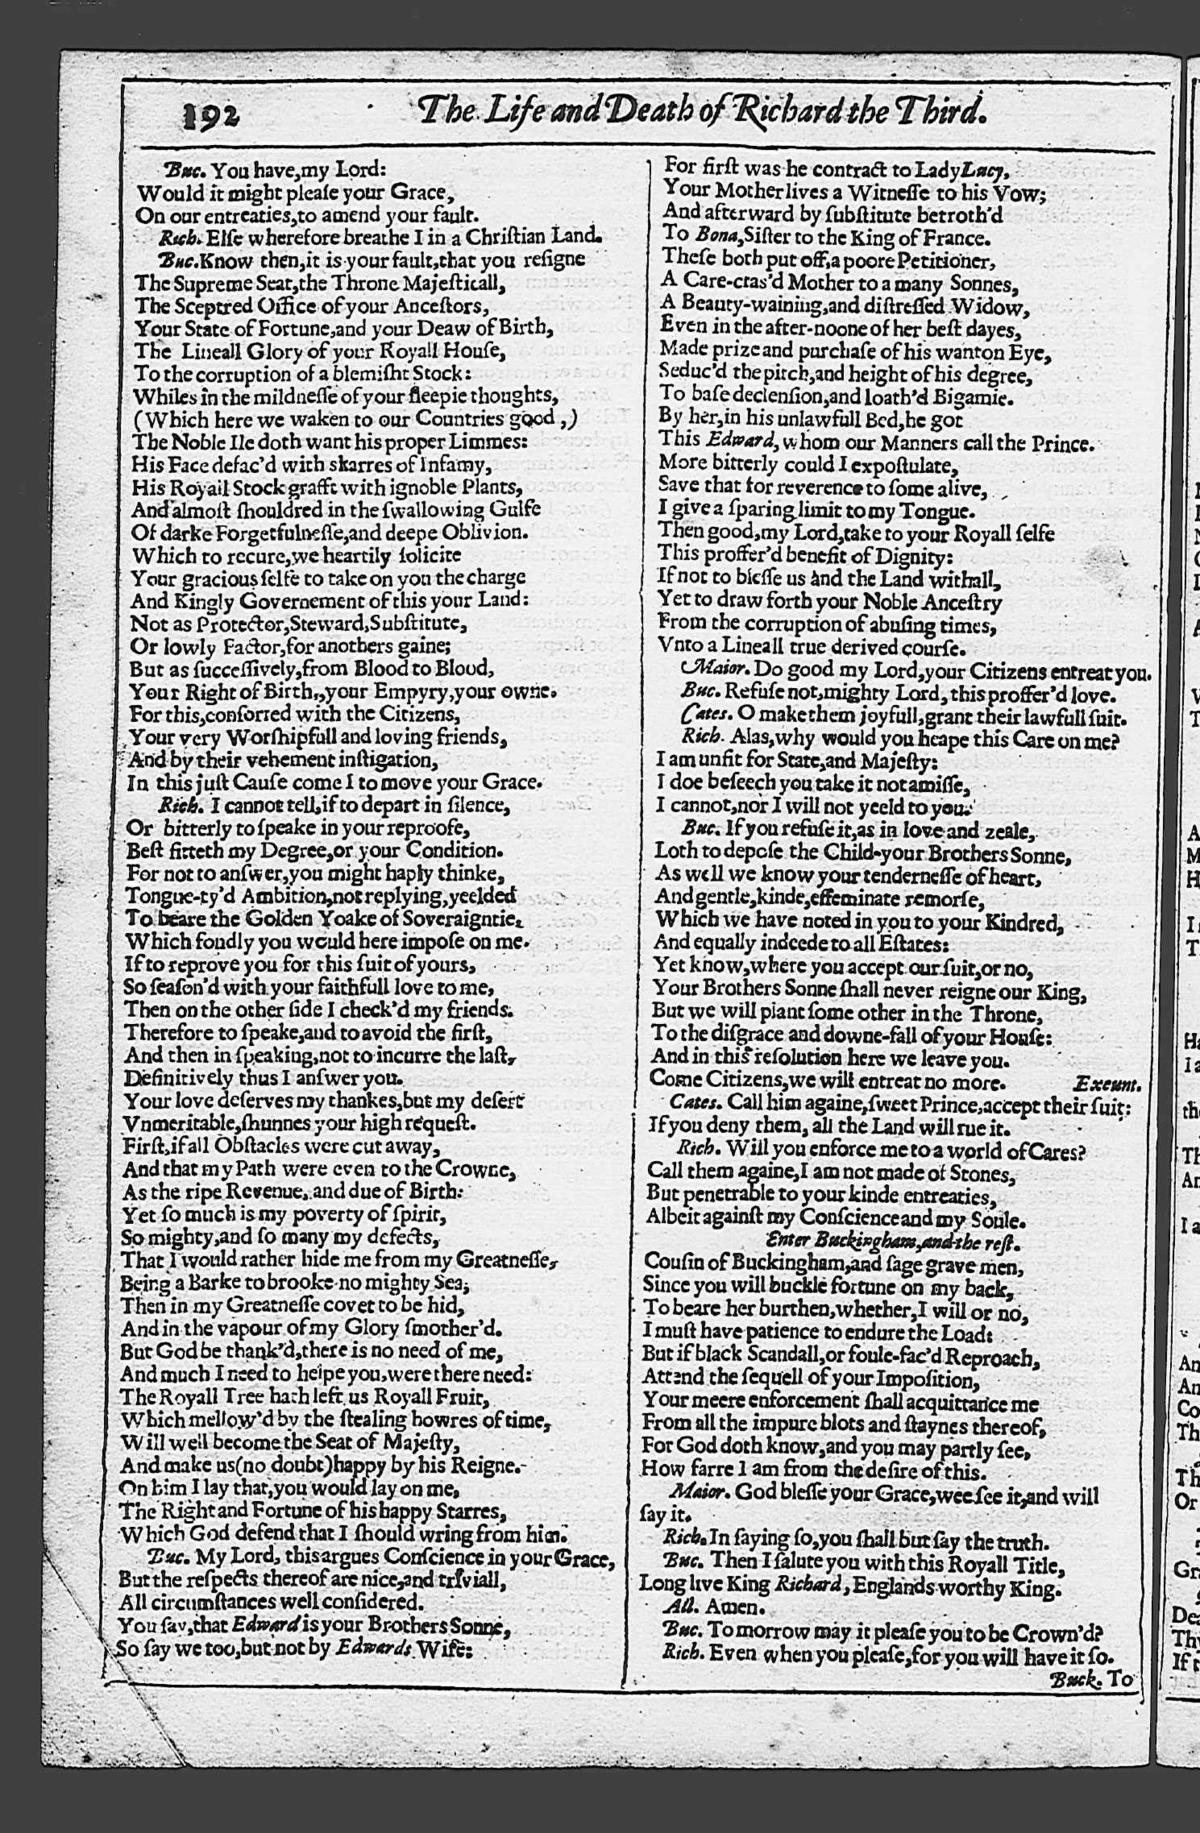 192
The Life and Death of Richard the Third.
Buc. You have,my Lord:
Would it might pleaſe your Grace,
On our entreaties,to amend your fault.
Rich. Elſe wherefore breathe I in a Chriſtian Land.
Buc.Know then,it is your fault,that you reſigne
The Supreme Seat,the Throne Majeſticall,
The Sceptred Office of your Anceſtors,
Your State of Fortune,and your Deaw of Birth,
The Lineall Glory of your Royall Houſe,
To the corruption of a blemiſht Stock:
Whiles in the mildneſſe of your ſleepie thoughts,
(Which here we waken to our Countries good,)
The Noble Ile doth want his proper Limmes:
His Face defac'd with skarres of Infamy,
His Royall Stock grafft with ignoble Plants,
And almoſt ſhouldred in the ſwallowing Gulfe
Of darke Forgetfulneſſe,and deepe Oblivion.
Which to recure,we heartily ſolicite
Your gracious ſelfe to take on you the charge
And Kingly Governement of this your Land:
Not as Protector,Steward,Subſtitute,
Or lowly Factor,for anothers gaine;
But as ſucceſſively,from Blood to Blood,
Your Right of Birth,your Empyry,your owne.
For this,conſorted with the Citizens,
Your very Worſhipfull and loving friends,
And by their vehement inſtigation,
In this juſt Cauſe come I to move your Grace.
Rich. I cannot tell,if to depart in ſilence,
Or bitterly to ſpeake in your reproofe,
Beſt fitteth my Degree,or your Condition.
For not to anſwer,you might haply thinke,
Tongue-ty'd Ambition,not replying,yeelded
To beare the Golden Yoake of Soveraigntie,
Which fondly you would here impoſe on me.
If to reprove you for this ſuit of yours,
So ſeaſon'd with your faithfull love to me,
Then on the other ſide I check'd my friends.
Therefore to ſpeake,and to avoid the firſt,
And then in ſpeaking,not to incurre the laſt,
Definitively thus I anſwer you.
Your love deſerves my thankes,but my deſert
Vnmeritable,ſhunnes your high requeſt.
Firſt,if all Obſtacles were cut away,
And that my Path were even to the Crowne,
As the ripe Revenue,and due of Birth:
Yet ſo much is my poverty of ſpirit,
So mighty,and ſo many my defects,
That I would rather hide me from my Greatneſſe,
Being a Barke to brooke no mighty Sea;
Then in my Greatneſſe covet to be hid,
And in the vapour of my Glory ſmother'd.
But God be thank'd,there is no need of me,
And much I need to helpe you,were there need:
The Royall Tree hath left us Royall Fruit,
Which mellow'd by the ſtealing howres of time,
Will well become the Seat of Majeſty,
And make us(no doubt)happy by his Reigne.
On him I lay that,you would lay on me,
The Right and Fortune of his happy Starres,
Which God defend that I ſhould wring from him.
Buc. My Lord, this argues Conſcience in your Grace,
But the reſpects thereof are nice,and triviall,
All circumſtances well conſidered.
You ſay,that Edward is your Brothers Sonne,
So ſay we too,but not by Edwards Wife:
For firſt was he contract to Lady Lucy,
Your Mother lives a Witneſſe to his Vow;
And afterward by ſubſtitute betroth'd
To Bona,Siſter to the King of France.
Theſe both put off,a poore Petitioner,
A Care-cras'd Mother to a many Sonnes,
A Beauty-waining,and diſtreſſed Widow,
Even in the after-noone of her beſt dayes,
Made prize and purchaſe of his wanton Eye,
Seduc'd the pitch,and height of his degree,
To baſe declenſion,and loath'd Bigamie.
By her,in his unlawfull Bed,he got
This Edward, whom our Manners call the Prince.
More bitterly could I expoſtulate,
Save that for reverence to ſome alive,
I give a ſparing limit to my Tongue.
Then good,my Lord,take to your Royall ſelfe
This proffer'd benefit of Dignity:
If not to bleſſe us and the Land withall,
Yet to draw forth your Noble Anceſtry
From the corruption of abuſing times,
Vnto a Lineall true derived courſe.
Maior. Do good my Lord,your Citizens entreat you.
Buc. Refuſe not,mighty Lord, this proffer'd love.
Cates. O make them joyfull,grant their lawfull ſuit.
Rich. Alas,why would you heape this Care on me?
I am unfit for State,and Majeſty:
I doe beſeech you take it not amiſſe,
I cannot,nor I will not yeeld to you.
Buc. If you refuſe it,as in love and zeale,
Loth to depoſe the Child-your Brothers Sonne,
As well we know your tenderneſſe of heart,
And gentle,kinde,effeminate remorſe,
Which we have noted in you to your Kindred,
And equally indeede to all Eſtates:
Yet know,where you accept our ſuit,or no,
Your Brothers Sonne ſhall never reigne our King,
But we will plant ſome other in the Throne,
To the diſgrace and downe-fall of your Houſe:
And in this reſolution here we leave you.
Come Citizens,we will entreat no more. Exeunt.
Cates. Call him againe,ſweet Prince,accept their ſuit:
If you deny them, all the Land will rue it.
Rich. Will you enforce me to a world of Cares?
Call them againe,I am not made of Stones,
But penetrable to your kinde entreaties,
Albeit againſt my Conſcience and my Soule.
Enter Buckingham,and the reſt.
Couſin of Buckingham,and ſage grave men,
Since you will buckle fortune on my back,
To beare her burthen,whether,I will or no,
I muſt have patience to endure the Load:
But if black Scandall,or foule-fac'd Reproach,
Attend the ſequell of your Impoſition,
Your meere enforcement ſhall acquittance me
From all the impure blots and ſtaynes thereof,
For God doth know,and you may partly ſee,
How farre I am from the deſire of this.
Maior. God bleſſe your Grace,wee ſee it,and will
ſay it.
Rich. In ſaying ſo,you ſhall but ſay the truth.
Buc. Then I ſalute you with this Royall Title,
Long live King Richard, Englands worthy King.
All. Amen.
Buc. To morrow may it pleaſe you to be Crown'd?
Rich. Even when you pleaſe,for you will have it ſo.
Buck. To